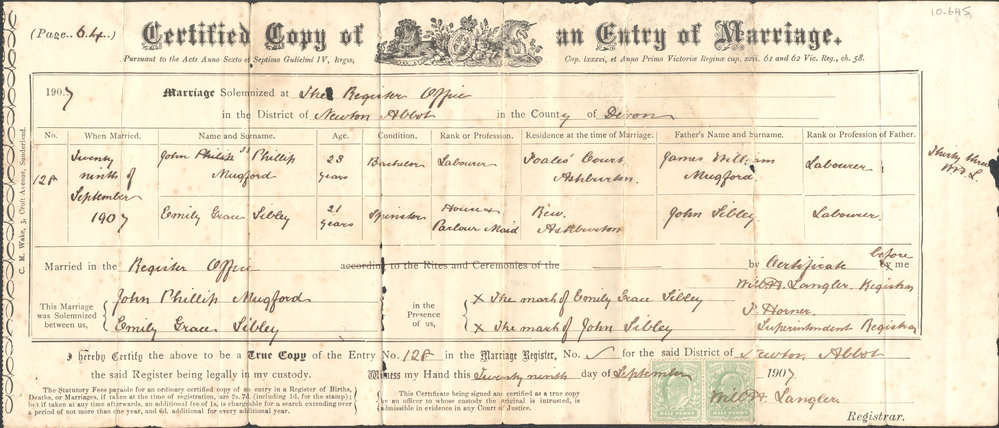 10.645
(Page 64)
Certified Copy of an Entry of Marriage.
Pursuant to the Acts Anno Sexto et Septimo Gulielmi IV, Regis, Cap. lxxxvi, et Anno Primo Victoriæ Reginæ cap. xxii, 61 and 62 Vic. Reg., ch. 58.
1907 Marriage Solemnized at The Register Office
in the District of Newton Abbot in the County of Devon
No. When Married. Name and Surname. Age. Condition. Rank or Profession. Residence at the time of Marriage. Father's Name and Surname. Rank or Profession of Father.
128
Twenty ninth of September 1907
John Philip 33 Phillip Mugford 23 years Bachelor Labourer Foales' Court, Ashburton. James William Mugford. Labourer
Thirty three
Emily Grace Sibley 21 years Spinster House & Parlour Maid Rew Ashburton John Sibley Labourer.
Married in the Register Office according to the Rites and Ceremonies of the by Certificate before by me
This Marriage was Solemnized between us,
John Phillip Mugford
Emily Grace Sibley
in the Presence of us,
X The mark of Emily Grace Sibley
X The mark of John Sibley
Langler Registrar
F. Horner
Superintendent Registrar
I hereby Certify the above to be a True Copy of the Entry No. 128 in the Marriage Register, No. for the said District of Newton Abbot
the said Register being legally in my custody. Witness my Hand this Twenty ninth day of September 1907
The Statutory Fees payable for an ordinary certified copy of an entry in a Register of Births,
Deaths, or Marriages, if taken at the time of registration, are 2s. 7d. (including 1d. for the stamp);
but if taken at any time afterwards, an additional fee of 1s. is chargeable for a search extending over
a period of not more than one year, and 6d. additional for every additional year.
This Certificate being signed and certified as a true copy
by an officer to whose custody the original is intrusted, is
admissible in evidence in any Court of Justice.
HALF PENNY
HALF PENNY
Langler
Registrar.
C. M. Wake, 3, Croft Avenue, Sunderland.